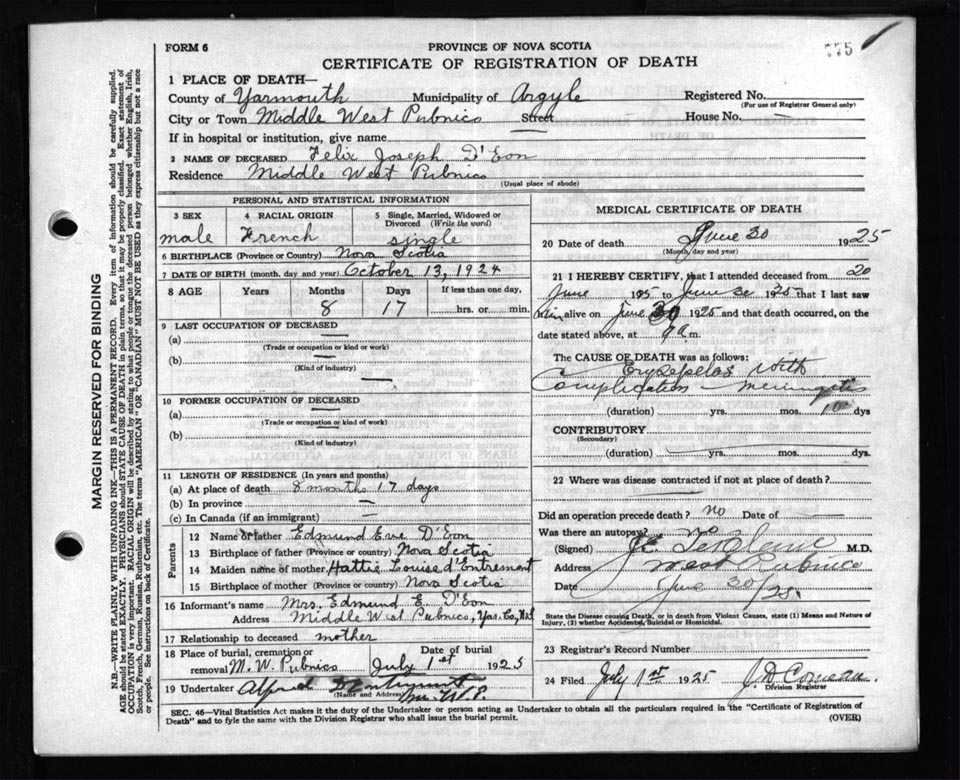 FORM 6
PROVINCE OF NOVA SCOTIA
775
CERTIFICATE OF REGISTRATION OF DEATH
1 PLACE OF DEATH—
County of Yarmouth Municipality of Argyle Registered No.
(For use of Registrar General only)
City or Town Middle West Pubnico Street House No. —
If in hospital or institution, give name
2 NAME OF DECEASED Felix Joseph D'Eon
Residence Middle West Pubnico
(Usual place of abode)
PERSONAL AND STATISTICAL INFORMATION
3 SEX
male
4 RACIAL ORIGIN
French
5 Single, Married, Widowed or
Divorced (Write the word)
single
6 BIRTHPLACE (Province or Country) Nova Scotia
7 DATE OF BIRTH (month, day and year) October 13, 1924
8 AGE Years Months Days If less than one day,
8 17 hrs. or min.
9 LAST OCCUPATION OF DECEASED
(a) —
(Trade or occupation or kind of work)
(b)
(Kind of industry)
—
10 FORMER OCCUPATION OF DECEASED
(a) —
(Trade or occupation or kind of work)
(b) —
(Kind of industry)
11 LENGTH OF RESIDENCE (In years and months)
(a) At place of death 8 months 17 days
(b) In province —
(c) In Canada (if an immigrant) —
Parents
12 Name of father Edmund Eve D'Eon
13 Birthplace of father (Province or country) Nova Scotia
14 Maiden name of mother Hattie Louise d'Entremont
15 Birthplace of mother (Province or country) Nova Scotia
16 Informant's name Mrs. Edmund E. D'Eon
Address Middle West Pubnico, Yar. Co., N.S.
17 Relationship to deceased mother
18 Place of burial, cremation or
removal M. W. Pubnico
Date of burial
July 1st 1925
19 Undertaker Alfred D'Entremont
(Name and Address) M.W.P.
MEDICAL CERTIFICATE OF DEATH
20 Date of death June 30 1925
(Month, day and year)
21 I HEREBY CERTIFY, that I attended deceased from 20
June 1925 to June 30 1925 that I last saw
him alive on June 30 1925 and that death occurred, on the
date stated above, at 9 a m.
The CAUSE OF DEATH was as follows:
Erysipelas with
complication — meningitis
(duration) yrs. mos. 10 dys
CONTRIBUTORY
(Secondary)
(duration) yrs. mos. dys.
22 Where was disease contracted if not at place of death?
Did an operation precede death? no Date of —
Was there an autopsy? no
(Signed) M.D.
Address West Pubnico
Date June 30/25
State the Disease causing Death, or in death from Violent Causes, state (1) Means and Nature of
Injury, (2) whether Accidental, Suicidal or Homicidal.
23 Registrar's Record Number
24 Filed July 1st 1925 J. D. Comeau.
Division Registrar
SEC. 46—Vital Statistics Act makes it the duty of the Undertaker or person acting as Undertaker to obtain all the particulars required in the "Certificate of Registration of
Death" and to fyle the same with the Division Registrar who shall issue the burial permit.
(OVER)
MARGIN RESERVED FOR BINDING
N.B.—WRITE PLAINLY WITH UNFADING INK—THIS IS A PERMANENT RECORD. Every item of information should be carefully supplied.
AGE should be stated EXACTLY. PHYSICIANS should STATE CAUSE OF DEATH in plain terms, so that it may be properly classified. Exact statement of
OCCUPATION is very important. RACIAL ORIGIN will be described by stating to what people or tongue the deceased person belonged whether English, Irish,
Scotch, French, German, Russian, Ruthenian, etc. The terms "AMERICAN" OR "CANADIAN" MUST NOT BE USED as they express citizenship but not a race
or people. See instructions on back of Certificate.